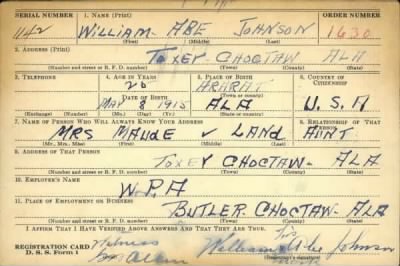 SERIAL NUMBER 1. NAME (Print) ORDER NUMBER
1142 WILLIAM ABE JOHNSON 1630
(First) (Middle) (Last)
2. ADDRESS (Print)
TOXEY CHOCTAW ALA
(Number and street or R. F. D. number) (Town) (County) (State)
3. TELEPHONE 4. AGE IN YEARS 5. PLACE OF BIRTH 6. COUNTRY OF CITIZENSHIP
ARARAT
DATE OF BIRTH (Town or county)
MAY 8 1915 ALA U.S.A
(Exchange) (Number) (Mo.) (Day) (Yr.) (State or country)
7. NAME OF PERSON WHO WILL ALWAYS KNOW YOUR ADDRESS 8. RELATIONSHIP OF THAT PERSON
MRS MAUDE V LAND AUNT
(Mr., Mrs., Miss) (First) (Middle) (Last)
9. ADDRESS OF THAT PERSON
TOXEY CHOCTAW - ALA
(Number and street or R. F. D. number) (Town) (County) (State)
10. EMPLOYER'S NAME
W.P.A
11. PLACE OF EMPLOYMENT OR BUSINESS
BUTLER CHOCTAW - ALA
(Number and street or R. F. D. number) (Town) (County) (State)
I AFFIRM THAT I HAVE VERIFIED ABOVE ANSWERS AND THAT THEY ARE TRUE.
Witness His
REGISTRATION CARD William Abe Johnson
D. S. S. Form 1 Mark